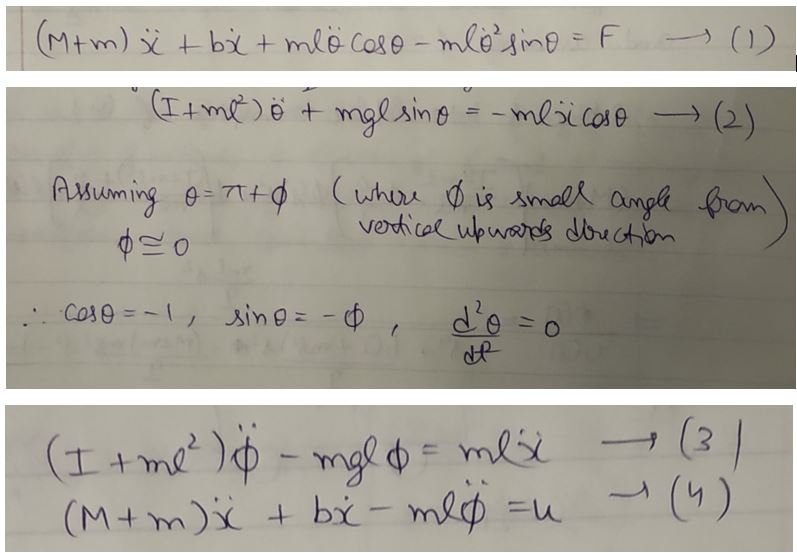 (M+m)ẍ + bẋ + mlθ̈ cosθ − mlθ̇² sinθ = F → (1)
(I+ml²)θ̈ + mgl sinθ = −mlẍ cosθ → (2)
Assuming θ = π + ϕ (where ϕ is small angle from
vertical upwards direction)
ϕ ≅ 0
∴ cosθ = −1, sinθ = −ϕ, d²θ/dt² = 0
(I + ml²)ϕ̈ − mglϕ = mlẍ → (3)
(M+m)ẍ + bẋ − mlϕ̈ = u → (4)